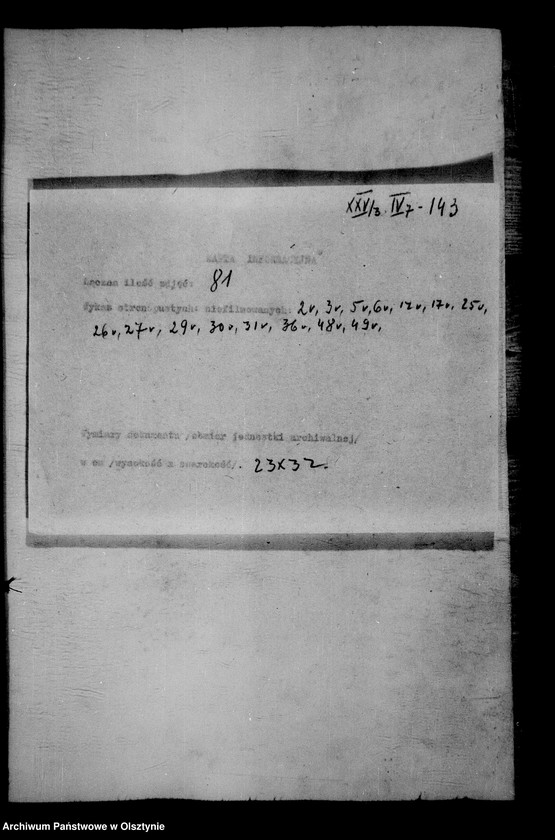 XXV/3. IV 7 - 143
KARTA INFORMACYJNA
Łączna ilość zdjęć: 81
Wykaz stron pustych niefilmowanych: 2v, 3v, 5v, 6v, 12v, 17v, 25v,
26v, 27v, 29v, 30v, 31v, 36v, 48v, 49v,
Wymiary dokumentu /obwiar jednostki archiwalnej/
w cm /wysokość x szerokość/. 23x32.
Archiwum Państwowe w Olsztynie